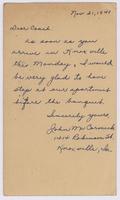 Nov 21, 1941
Dear Coach
As soon as you
arrive in Knoxville
this Monday, I would
be very glad to have
stop at our apartment
before the banquet.
Sincerely yours,
John McCormick
Robinson St
Knoxville, Ia.